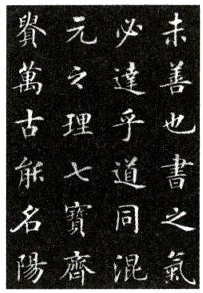 未善也書之氣
必達乎道同混
元之理七寶齊
貴萬古能名陽